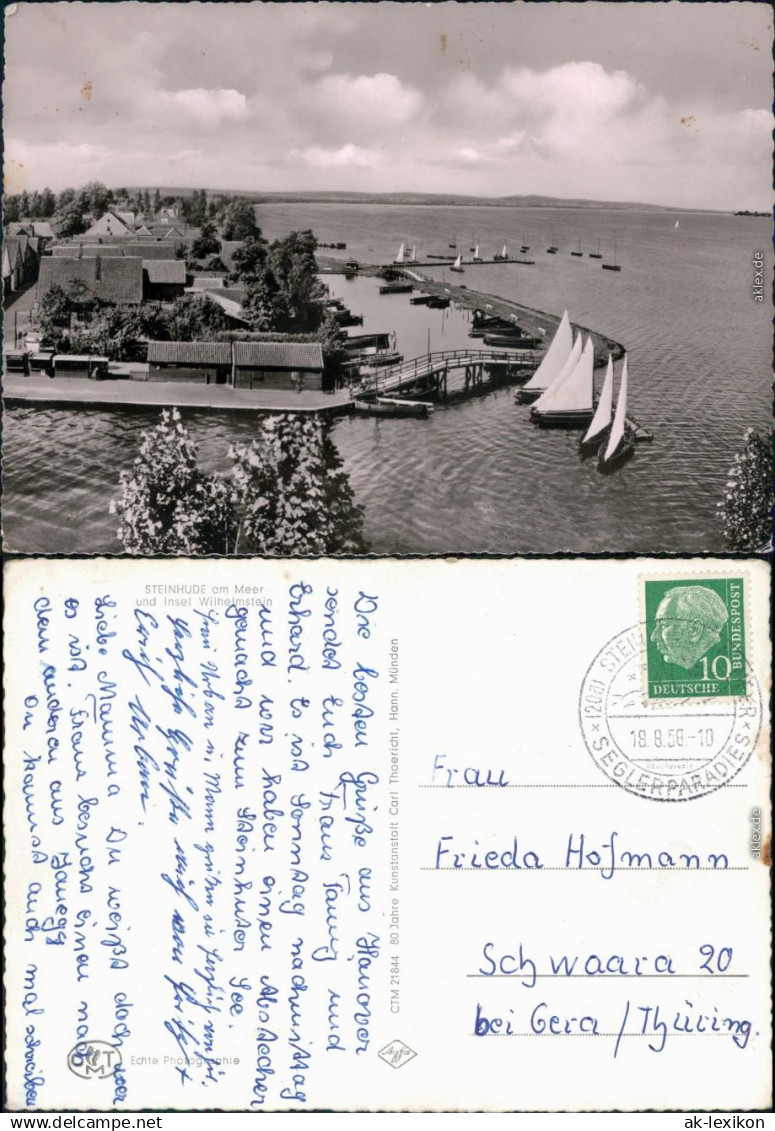 aklex.de
STEINHUDE am Meer
und Insel Wilhelmstein
Die besten Grüße aus Hanover
sendet Euch Frau Fanny und
Erhard. Es ist Sonntag nachmittag
und wir haben einen Abstecher
gemacht zum Steinhuder See.
Herzlich Grüße
Liebe Mamma Du weißt doch wer
es ist. Franz besucht einen nach
dem anderen aus
Du kannst auch mal schreiben
Echte Photographie
MTM
CTM 21844 80 Jahre Kunstanstalt Carl Thoericht, Hann. Münden
Agfa
10
DEUTSCHE
BUNDESPOST
(20a) STEINHUDE
18.8.58.-10
SEGLERPARADIES
Frau
Frieda Hofmann
Schwaara 20
bei Gera/Thüring.
aklex.de
www.ak-lexikon.de
ak-lexikon.de